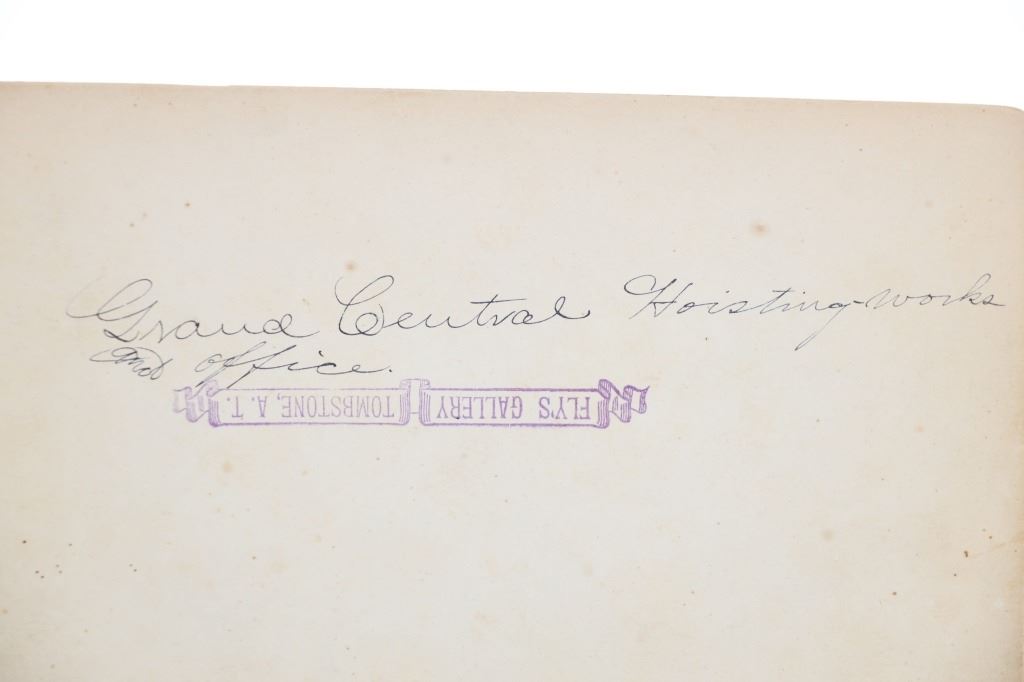 Grand Central Hoisting-works
and office.
FLY'S GALLERY TOMBSTONE, A. T.